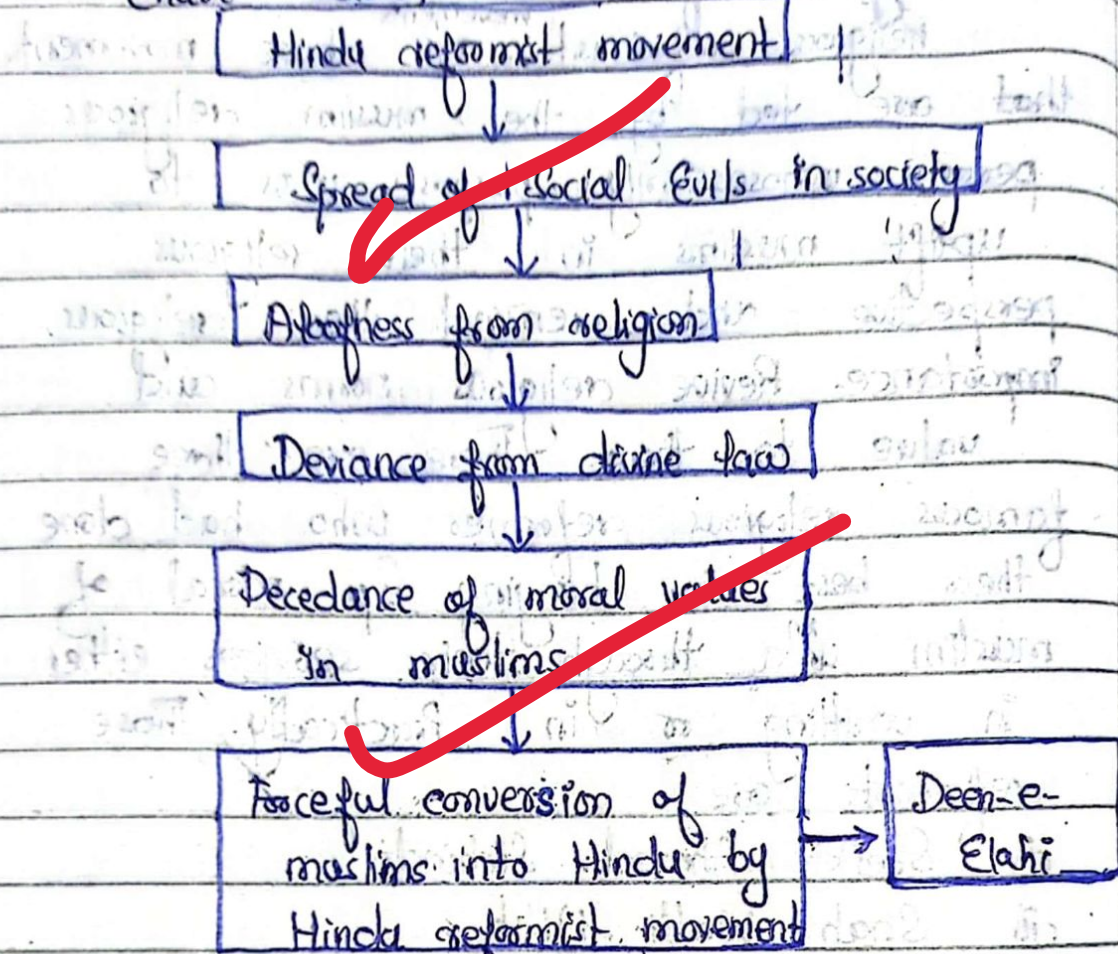 Hindu reformist movement
Spread of Social Evils in society
Aloofness from religion
Deviance from divine law
Decedance of moral values
in muslims
Forceful conversion of
muslims into Hindu by
Hindu reformist movement
Deen-e-
Elahi